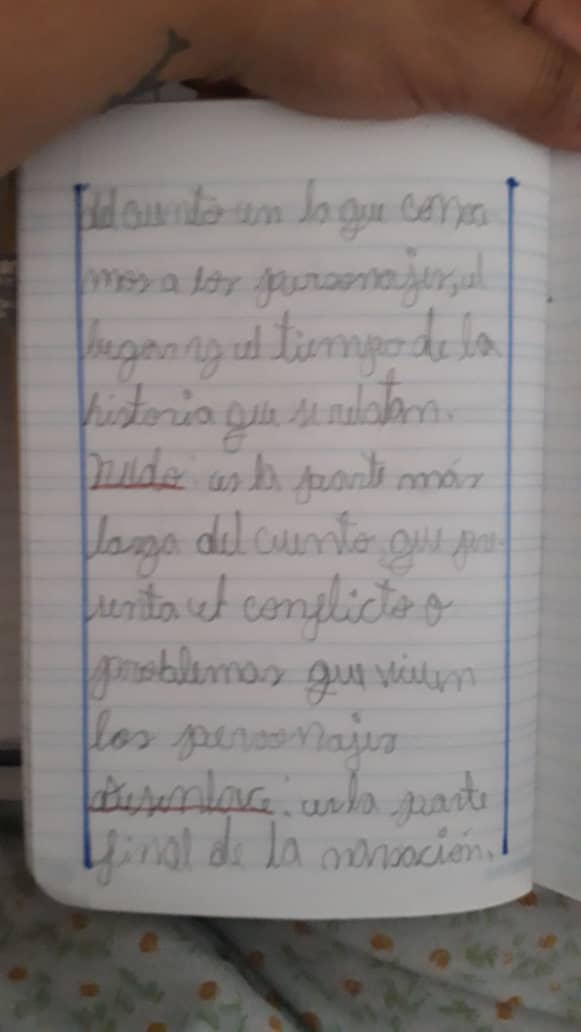 del cuento en la que cono
mos a los personajes, el
lugar y el tiempo de la
historia que se relatan.
nudo es la parte más
larga del cuento que pre-
senta el conflicto o
problemas que viven
los personajes
desenlace: es la parte
final de la narración.